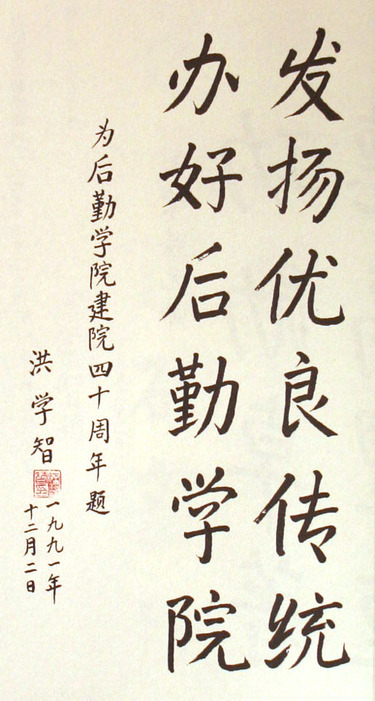 发扬优良传统
办好后勤学院
为后勤学院建院四十周年题
洪学智
一九九一年
十二月二日